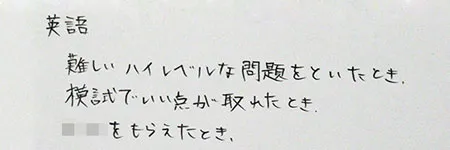 英語
難しいハイレベルな問題をといたとき.
模試でいい点が取れたとき.
をもらえたとき.